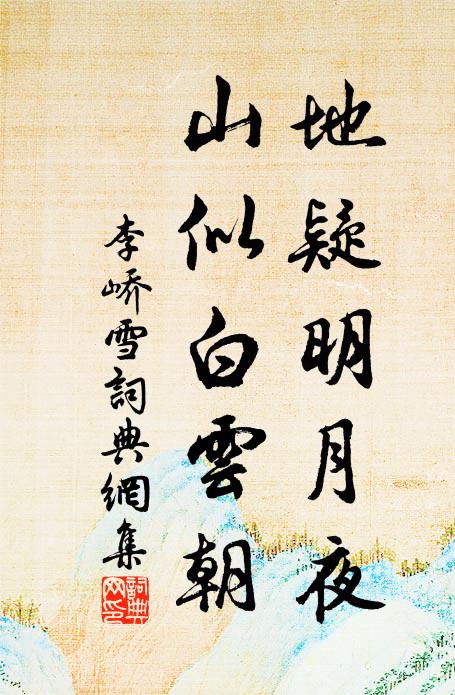 地疑明月夜
山似白雲朝
李嶠雪詞典網集
詞典